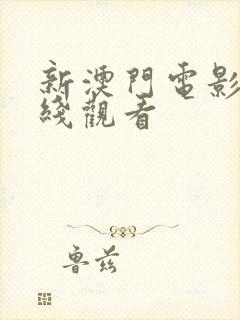 新澳門電影
綫觀看
魯兹